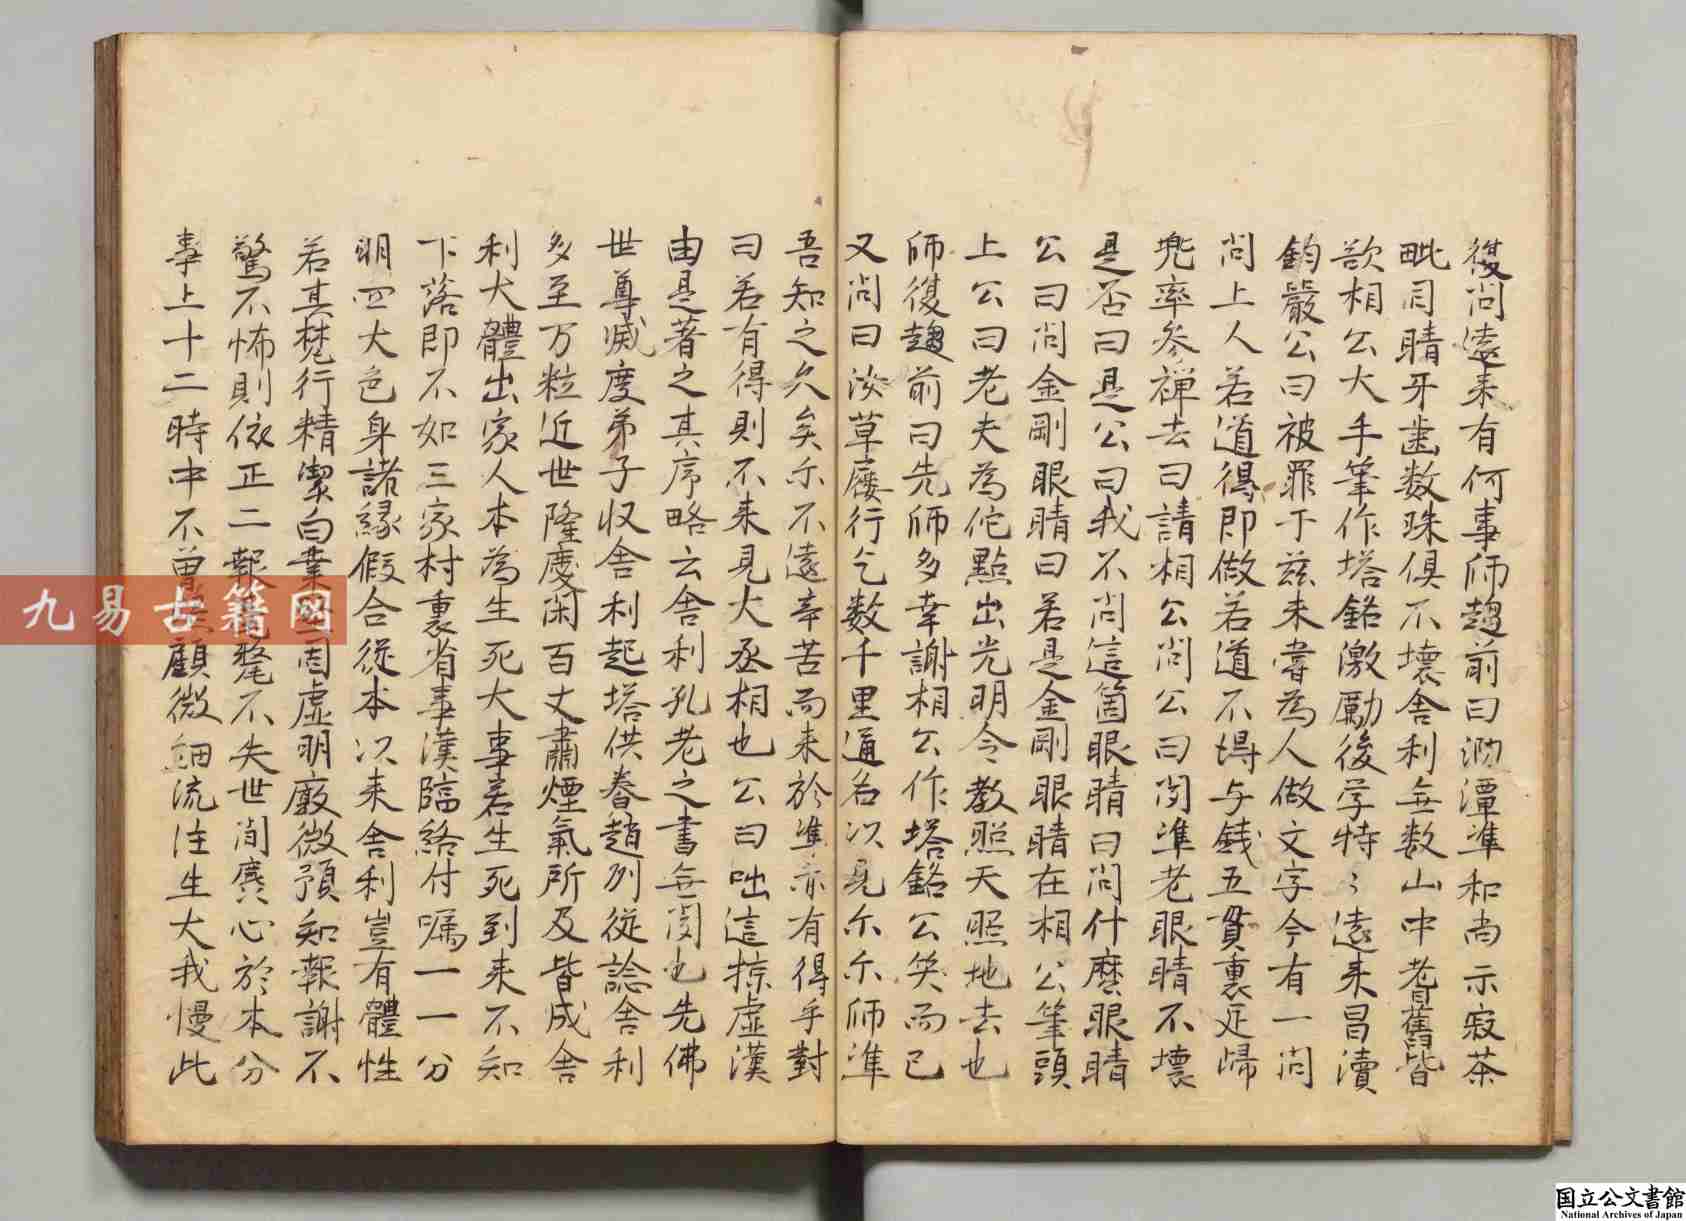 復问遠来有何事师趨前曰泐潭準和尚示寂茶
毗目睛牙齒数珠俱不壊舍利無数山中耆舊皆
欲相公大手筆作塔銘激勵後学特〻遠来冒瀆
鈞嚴公曰被罪于兹未嘗為人做文字今有一问
问上人若道得即做若道不得与錢五貫裏足歸
兜率參禅去曰請相公问公曰闻準老眼睛不壊
是否曰是公曰我不问這箇眼睛曰问什麽眼睛
公曰问金剛眼睛曰若是金剛眼睛在相公筆頭
上公曰老夫為佗點出光明令教照天照地去也
师復趨前曰先师多幸謝相公作塔銘公笑而已
又问曰汝草屨行乞数千里通名以見尓尓师準
吾知之久矣尓不遠辛苦而来於準亦有得乎對
曰若有得則不来見大丞相也公曰咄這掠虚漢
由是著之其序略云舍利孔老之書無闻也先佛
世尊滅度弟子収舍利起塔供養趙列從諗舍利
多至万粒近世隆慶闲百丈肅煙氣所及皆成舍
利大體出家人本為生死大事若生死到来不知
下落即不如三家村裏省事漢臨終付嘱一一分
明四大色身諸縁假合從本以来舍利豈有體性
若其梵行精潔白業 固虚明廓微預知報謝不
驚不怖則依正二報毫氂不失世间麁心於本分
事上十二時中不曽 顧微細流注生大我慢此
九易古籍網
国立公文書館
National Archives of Japan